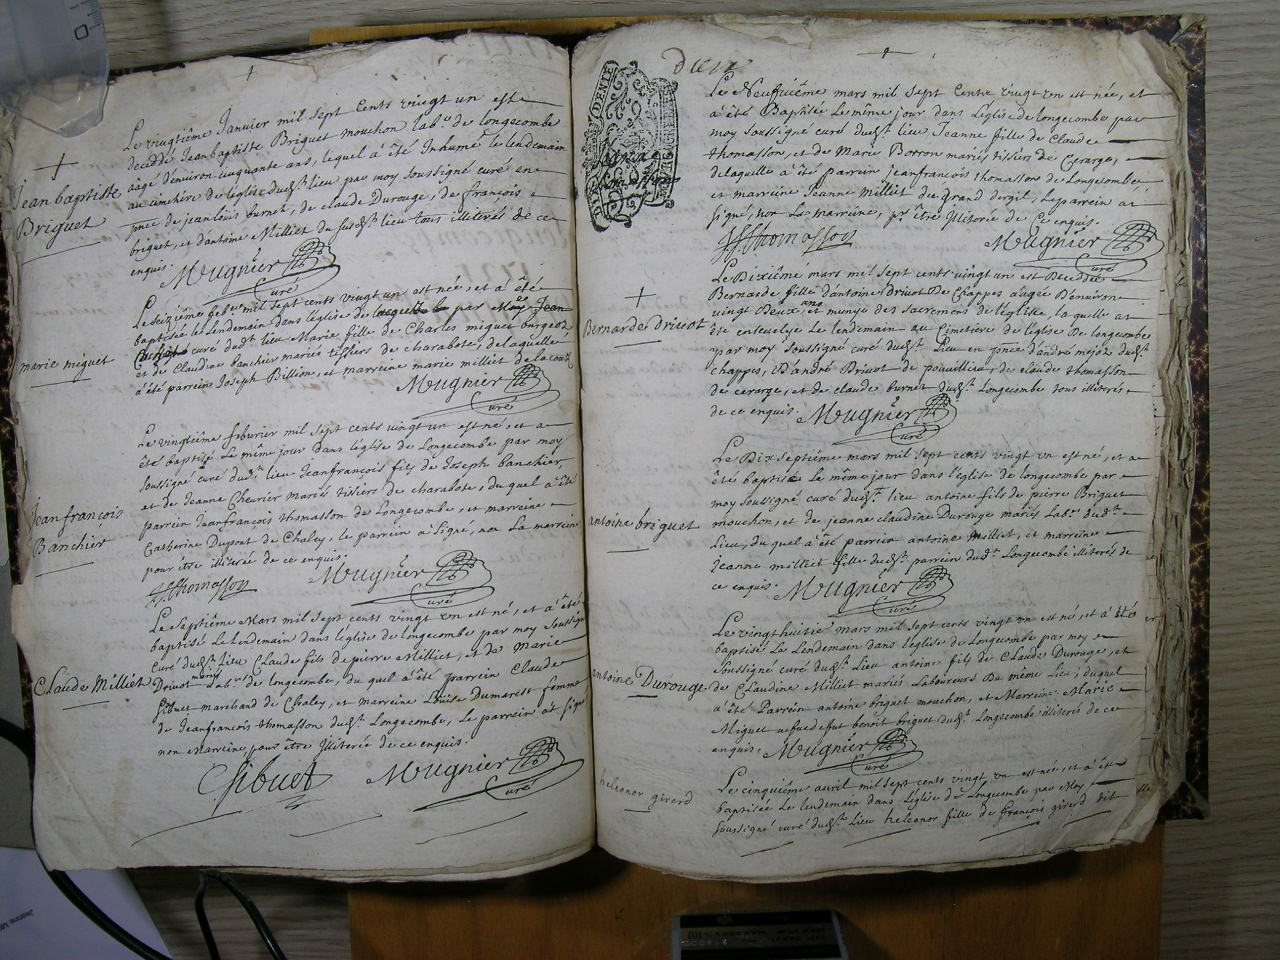 Jean baptiste
Briguet
Le vingtiême Janvier mil sept Cents vingt un est
decedé Jeanbaptiste Briguet mouchon lab.r de longecombe
aagé denviron cinquante ans, lequel à été Inhumé le lendemain
au cimetiere de leglise dud.t lieu par moy soussigné curé en
pnce de jeanlouis burnet, de claude Durouge, de françois
briguet, et dantoine Milliet du susd.t lieu tous illiterés de ce
enquis. Mugnier
Curé
marie miguet
Le seizième feb.er mil sept cents vingt un est née, et à été
baptisée le lendemain dans leglise de par Moy Jean
curé dud.t lieu Marie fille de Charles miguet burgeod
et de Claudine banchier mariés tissiers de charabote, de laquelle
à été parreins Joseph Billion, et marreine marie milliet de la
Mugnier
Curé
Jeanfrancois
Banchier
Le vingtiême feburier mil sept cents vingt un est né, et a
êté baptisé le même jour dans leglise de Longecombe par moy
soussigné curé dud.t lieu Jeanfrançois fils de Joseph banchier,
et de Jeanne Chevrier mariés tissiers de charabote, du quel à été
parrein Jeanfrancois thomasson de Longecombe, et marreine
Catherine Dupont de Chaley, le parrein a signé, non la marreine
pour être illiterée de ce enquis.
JfThomasson Mugnier
Curé
Claude Milliet
Le septiême Mars mil sept cents vingt un est né, et à été
baptisé le lendemain dans leglise de longecombe par moy soussigné
curé dud.t Lieu Claude fils de pierre Milliet, et de Marie
Drivot mariés lab.rs de longecombe, du quel a été parrein Claude
Sibuet marchand de Chaley, et marreine Louise Dumarest femme
de Jeanfrancois thomasson dud.t Longecombe, le parrein at signé
non Marreine pour être Illiterée de ce enquis.
CSibuet Mugnier
Curé
Le Neufviême mars mil sept Cents vingt un est née, et
à été Baptisée Le même jour dans l'église de longecombe par
moy soussigné curé dud.t lieu Jeanne fille de Claude
thomasson, et de Marie Borron mariés tissiers de Cerarge,
delaquelle a été parrein jeanfrançois thomasson de Longecombe
et marreine Jeanne Milliet du grand dergil, Leparrein ai
signé, non La marreine, pr. être Illiterée de ce enquis.
JfThomasson Mugnier
Curé
Bernarde drivot
Le Dixiême mars mil sept cents vingt un est Decedée
Bernarde fille d'antoine Drivot De Chappes aagée D'environ
vingt Deux ans et munye des sacremens de l'église, la quelle at
êté ensevelye le lendemain au Cimetiere de l'église de Longecombe
par moy soussigné curé dud.t Lieu en pnce d'andré mejoz dud.t
chappes, D'andré Drivot de pouvillieu, de claude thomasson
de cerarge, et de claude burnet dud.t Longecombe tous illiterés
de ce enquis. Mugnier
Curé
antoine briguet
Le Dix septiême mars mil sept cents vingt un est né, et a
êté baptisé le même jour dans l'eglise de longecombe par
moy soussigné curé dud.t lieu antoine fils de pierre Briguet
mouchon, et de jeanne claudine Durouge mariés Lab.rs dud.t
Lieu, du quel a été parrein antoine Milliet, et marreine
Jeanne milliet fille dud.t parrein dud.t Longecombe illiterés de
ce enquis. Mugnier
Curé
antoine Durouge
Le vingthuitie mars mil sept cents vingt un est né, et à été
baptisé Le Lendemain dans l'eglise de Longecombe par moy
soussigné curé dud.t Lieu antoine fils de Claude Durouge, et
de Claudine Milliet mariés Laboureurs Du même Lieu, duquel
a été Parrein antoine briguet mouchon, et Marreine Marie
Miguet benoit briguet dud.t Longecombe illiterés de ce
enquis. Mugnier
Curé
heleonor girerd
Le Cinquiême avril mil sept cents vingt un est née, et à été
baptisée Le lendemain dans L'église de Longecombe par Moy
soussigné curé dud.t Lieu heleonor fille de françois girerd dit